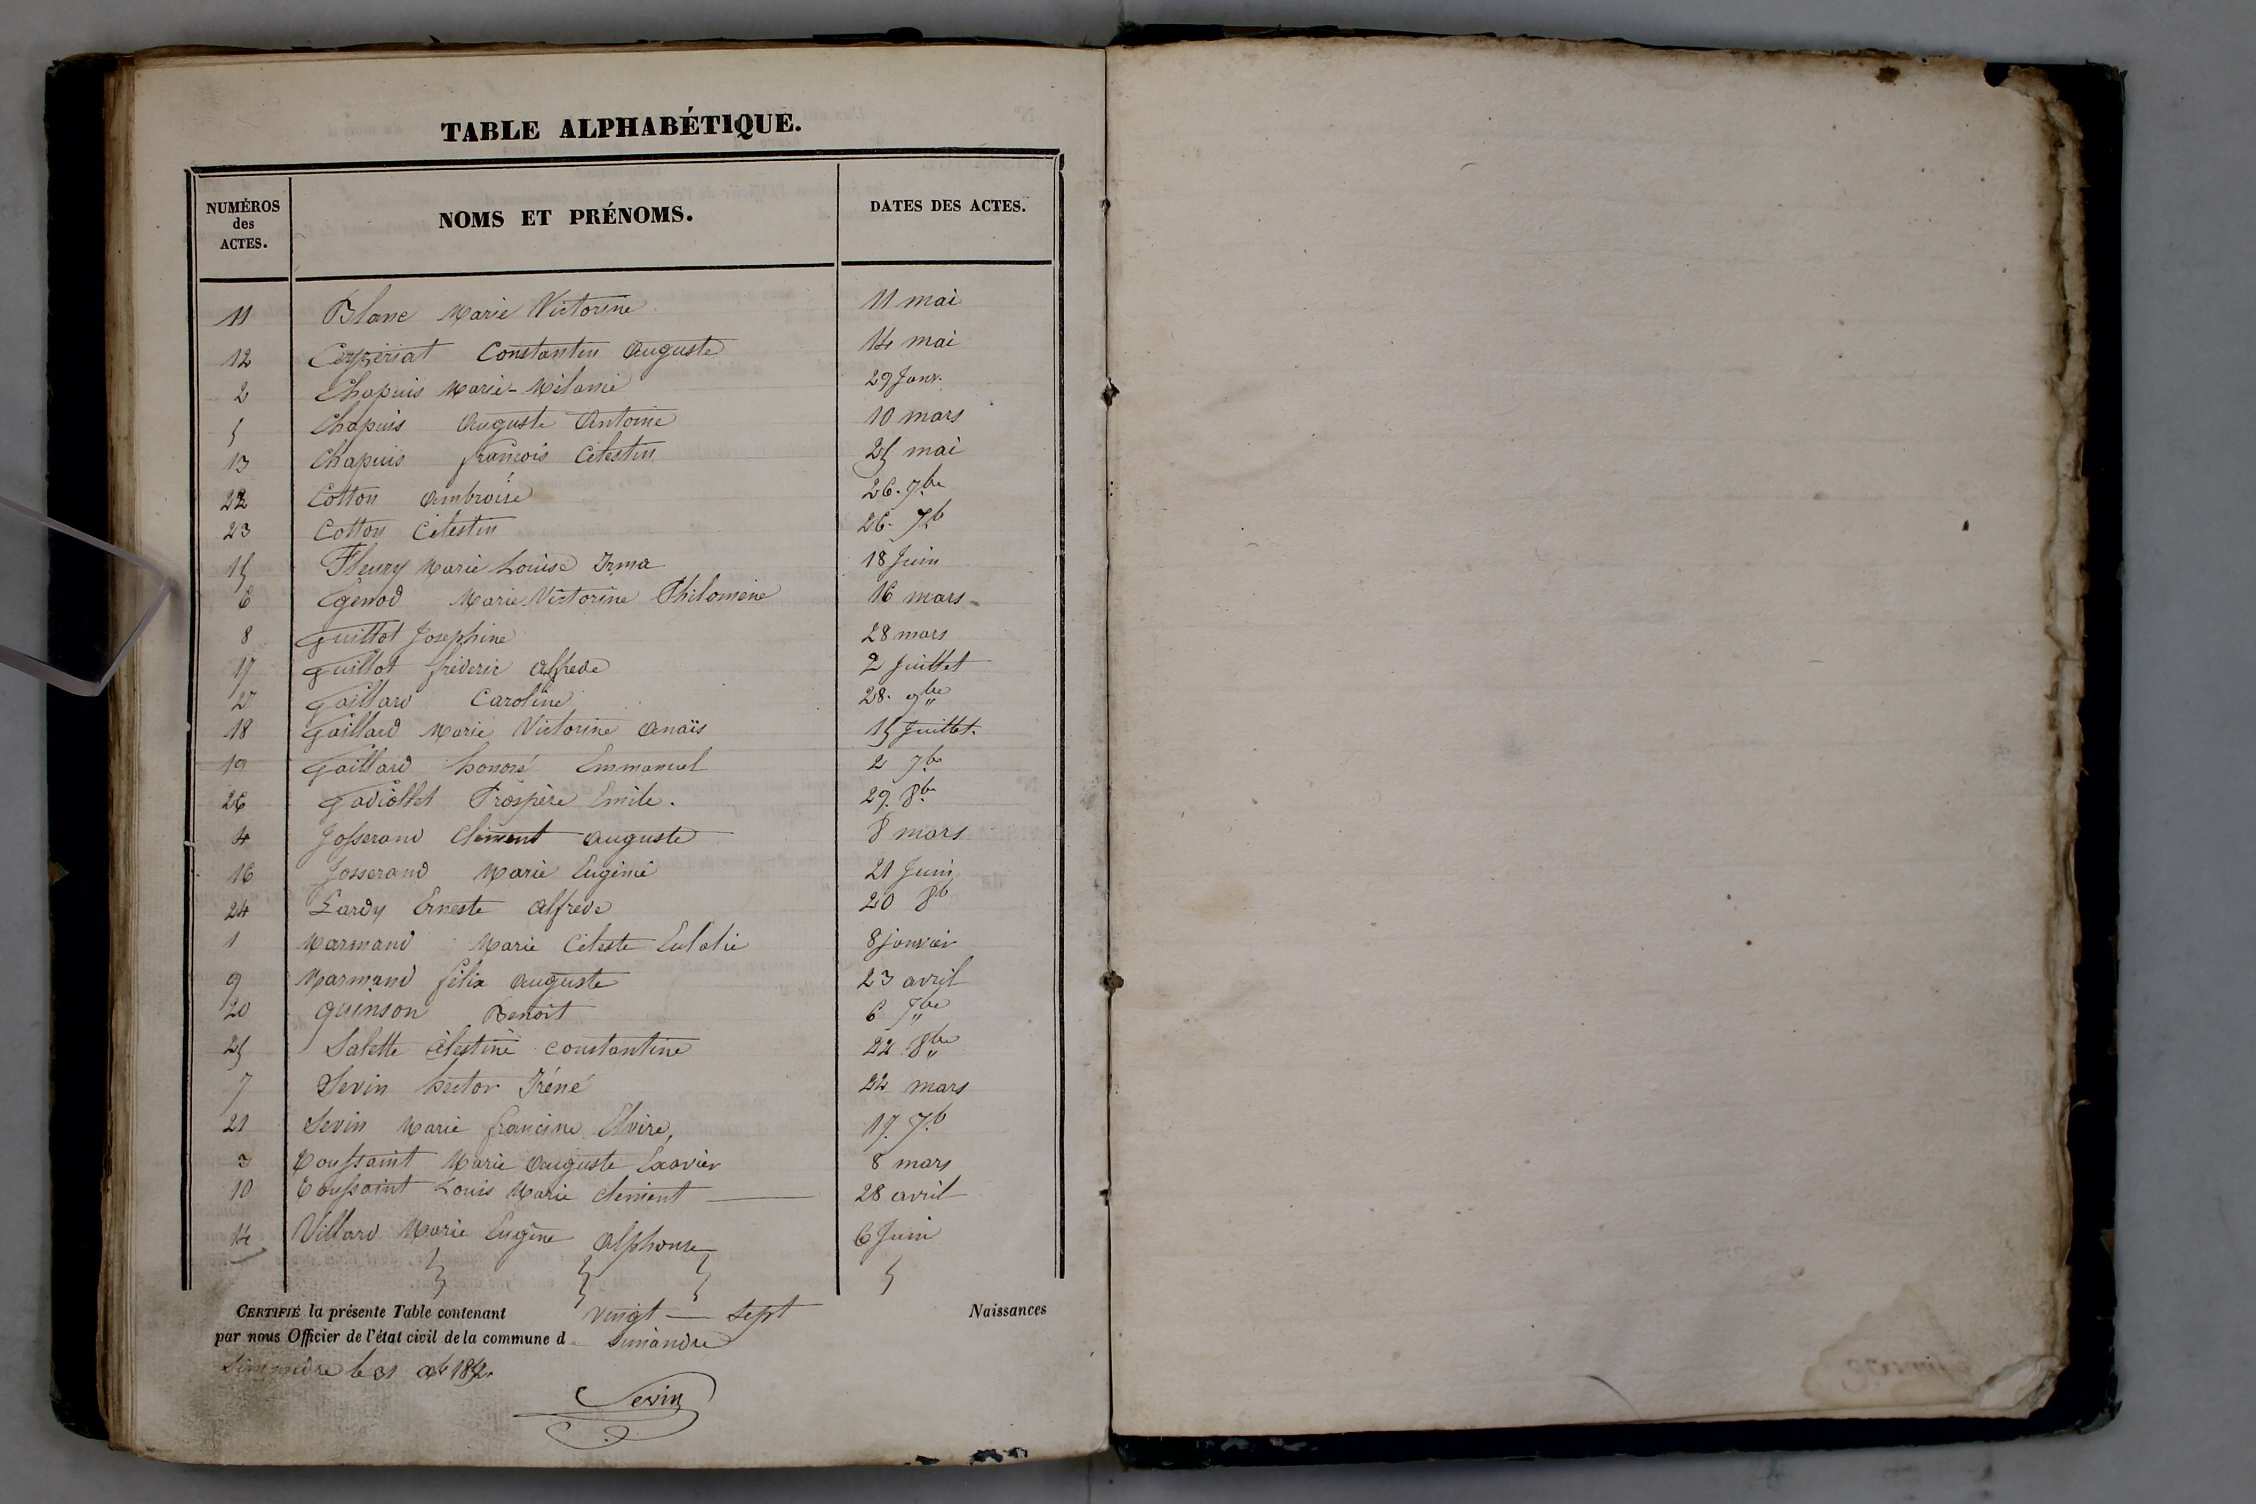 TABLE ALPHABÉTIQUE.
NUMÉROS des ACTES. NOMS ET PRÉNOMS. DATES DES ACTES.
11 Blanc Marie Victorine 11 mai
12 Ceyzeriat Constantin Auguste 14 mai
2 Chapuis Marie-Mélanie 29 Janv.
5 Chapuis Auguste Antoine 10 mars
13 Chapuis françois Célestin 25 mai
22 Cotton Ambroise 26. 7bre
23 Cotton Célestin 26. 7b
15 Fleury Marie Louise Irma 18 Juin
6 Egenod Marie Victorine Philomène 16 mars
8 Guillot Joséphine 28 mars
17 Guillot fréderic alfrede 2 Juillet
27 Gaillard Caroline 28. 9bre
18 Gaillard Marie Victorine Anaïs 15 Juillet.
19 Gaillard honoré Emmanuel 2 7bre
26 Gadiollet Prospère Emile. 29. 8bre
4 Josserand Clément Auguste 8 mars
16 Josserand Marie Eugénie 21 Juin
24 Lardy Erneste Alfrede 20 8b
1 Marmand Marie Céleste Eulalie 8 janvier
9 Marmand félix Auguste 23 avril
20 Quinson Benoit 6 7bre
25 Salette Célestine constantine 22 8bre
7 Sevin hector Iréné 22 mars
21 Sevin Marie francine Elvire, 17. 7b
3 Toussaint Marie Auguste Exavier 8 mars
10 Toussaint Louis Marie clément 28 avril
14 Villard Marie Eugène Alphonse 6 Juin
CERTIFIÉ la présente Table contenant vingt — sept Naissances
par nous Officier de l'état civil de la commune d Simandre
Simandre le 31 Xb
Sevin